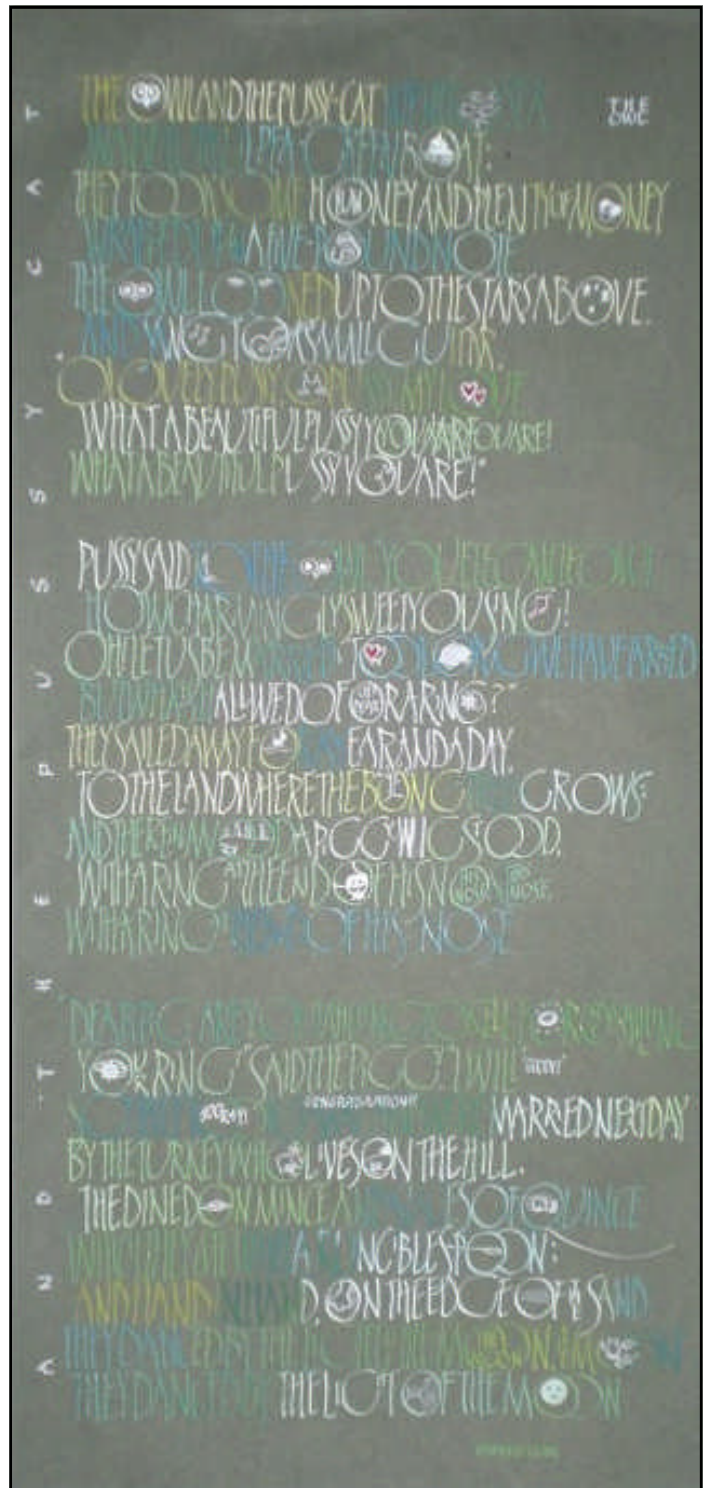 THE OWL
THE OWL AND THE PUSSY-CAT WENT TO SEA
IN A BEAUTIFUL PEA-GREEN BOAT:
THEY TOOK SOME HONEY AND PLENTY OF MONEY
WRAPPED UP IN A FIVE-POUND NOTE
THE OWL LOOKED UP TO THE STARS ABOVE.
AND SANG TO A SMALL GUITAR.
"O LOVELY PUSSY, O PUSSY MY LOVE
WHAT A BEAUTIFUL PUSSY YOU ARE YOU ARE!
WHAT A BEAUTIFUL PUSSY YOU ARE!"
PUSSY SAID TO THE OWL YOU ELEGANT FOWL
HOW CHARMINGLY SWEET YOU SING!
OH LET US BE MARRIED TOO LONG WE HAVE TARRIED
BUT WHAT SHALL WE DO FOR A RING?"
THEY SAILED AWAY FOR A YEAR AND A DAY.
TO THE LAND WHERE THE BONG TREE GROWS:
AND THERE IN A WOOD A PIGGYWIG STOOD.
WITH A RING AT THE END OF HIS NOSE
WITH A RING OF HIS NOSE
"DEAR PIG ARE YOU WILLING TO SELL FOR ONE SHILLING
YOUR RING" SAID THE PIGGY I WILL
CONGRATULATIONS! MARRIED NEXT DAY
BY THE TURKEY WHO LIVES ON THE HILL.
THE DINED ON MINCE AND SLICES OF QUINCE
WHICH THEY ATE WITH A RUNCIBLE SPOON:
AND HAND IN HAND, ON THE EDGE OF THE SAND
THEY DANCED BY THE LIGHT OF THE MOON, THE MOON
THEY DANCED BY THE LIGHT OF THE MOON
AND THE PUSSY CAT